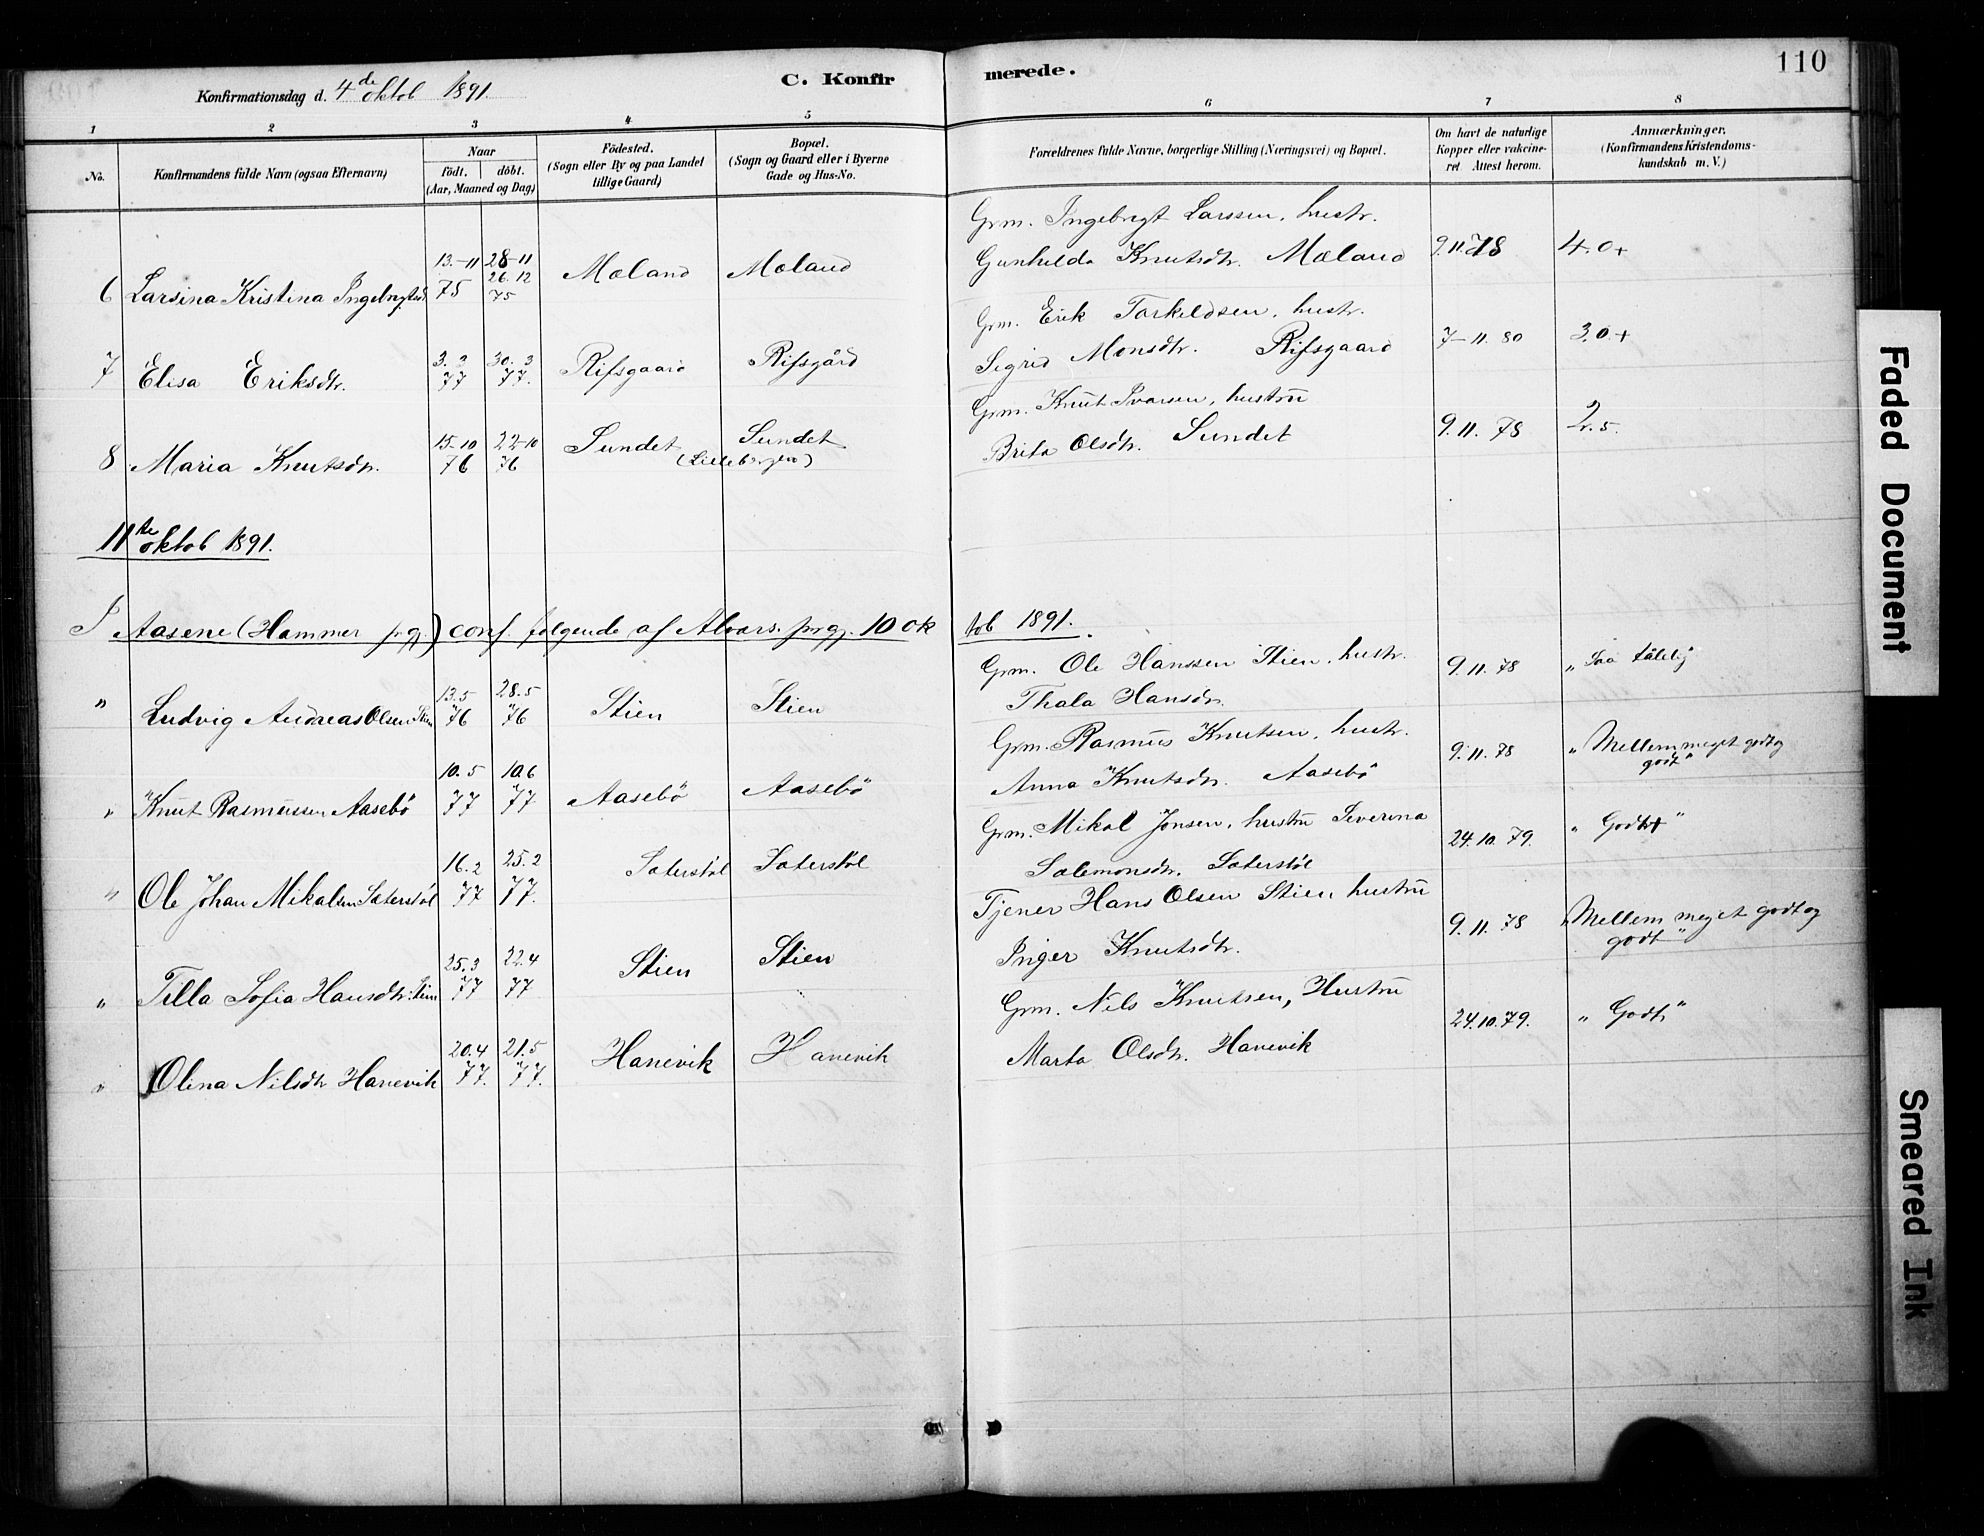 110
C. Konfirmerede.
Konfirmationsdag d. 4de oktob 1891.
1 2 3 4 5 6 7 8
No.
Konfirmandens fulde Navn (ogsaa Efternavn)
Naar
født. döbt.
(Aar, Maaned og Dag)
Födested.
(Sogn eller By og paa Landet
tillige Gaard)
Bopæl.
(Sogn og Gaard eller i Byerne
Gade og Hus-No.
Forældrenes fulde Navne, borgerlige Stilling (Næringsvei) og Bopæl.
Om havt de naturlige
Kopper eller vakcine-
ret Attest herom.
Anmærkninger.
(Konfirmandens Kristendoms-
kundskab m. V.)
6 Larsina Kristina Ingebrigtsd. 13.-11 75 28-11 26.12 75 Moland Moland
Grm. Ingebrigt Larssen, hustr.
Gunhilda Knutsdtr. Moland 9.11.78 4.0+
7 Elisa Eriksdtr. 3.3 77 30.3 77. Rifsgaard Rifsgård
Grm. Erik Torkeldsen, hustr.
Sigrid Monsdtr. Rifsgaard 7-11.80 3.0+
8 Maria Knutsdtr. 15-10 76 22-10 76 Sundet Sundet
(Lillebergen)
Grm. Knut Ivarsen, hustru
Brita Olsdtr. Sundet 9.11.78 2.5.
11te oktob 1891.
I Aasene (Hammer prgj.) conf. følgende af Alvers. prgj. 10 oktob 1891.
" Ludvig Andreas Olsen Stien 13.5 76 28.5 76 Stien Stien
Grm. Ole Hanssen Stien, hustr.
Thala Hansdr. 9.11.78 "Saa tålelig
" Knut Rasmussen Aasebö 10.5 77 10.6 77 Aasebö Aasebö
Grm. Rasmus Knutsen, hustr.
Anna Knutsdtr. Aasebö 9.11.78 "Mellem meget godt og
godt"
" Ole Johan Mikalsen Sæterstöl 16.2 77 25.2 77. Sæterstöl Sæterstöl
Grm. Mikal Jonsen, hustru Severina
Salemonsdtr. Sæterstöl 24.10.79. "Godt"
" Tilla Sofia Hansdtr. Stien 25.3 77 22.4 77 Stien Stien
Tjener Hans Olsen Stien hustru
Inger Knutsdtr. 9.11.78 "Mellem meget godt og
godt"
" Olina Nilsdtr Hanevik 20.4 77. 21.5 77. Hanevik Hanevik
Grm. Nils Knutsen, Hustru
Marta Olsdtr. Hanevik 24.10.79. "Godt"
Faded Document
Smeared Ink